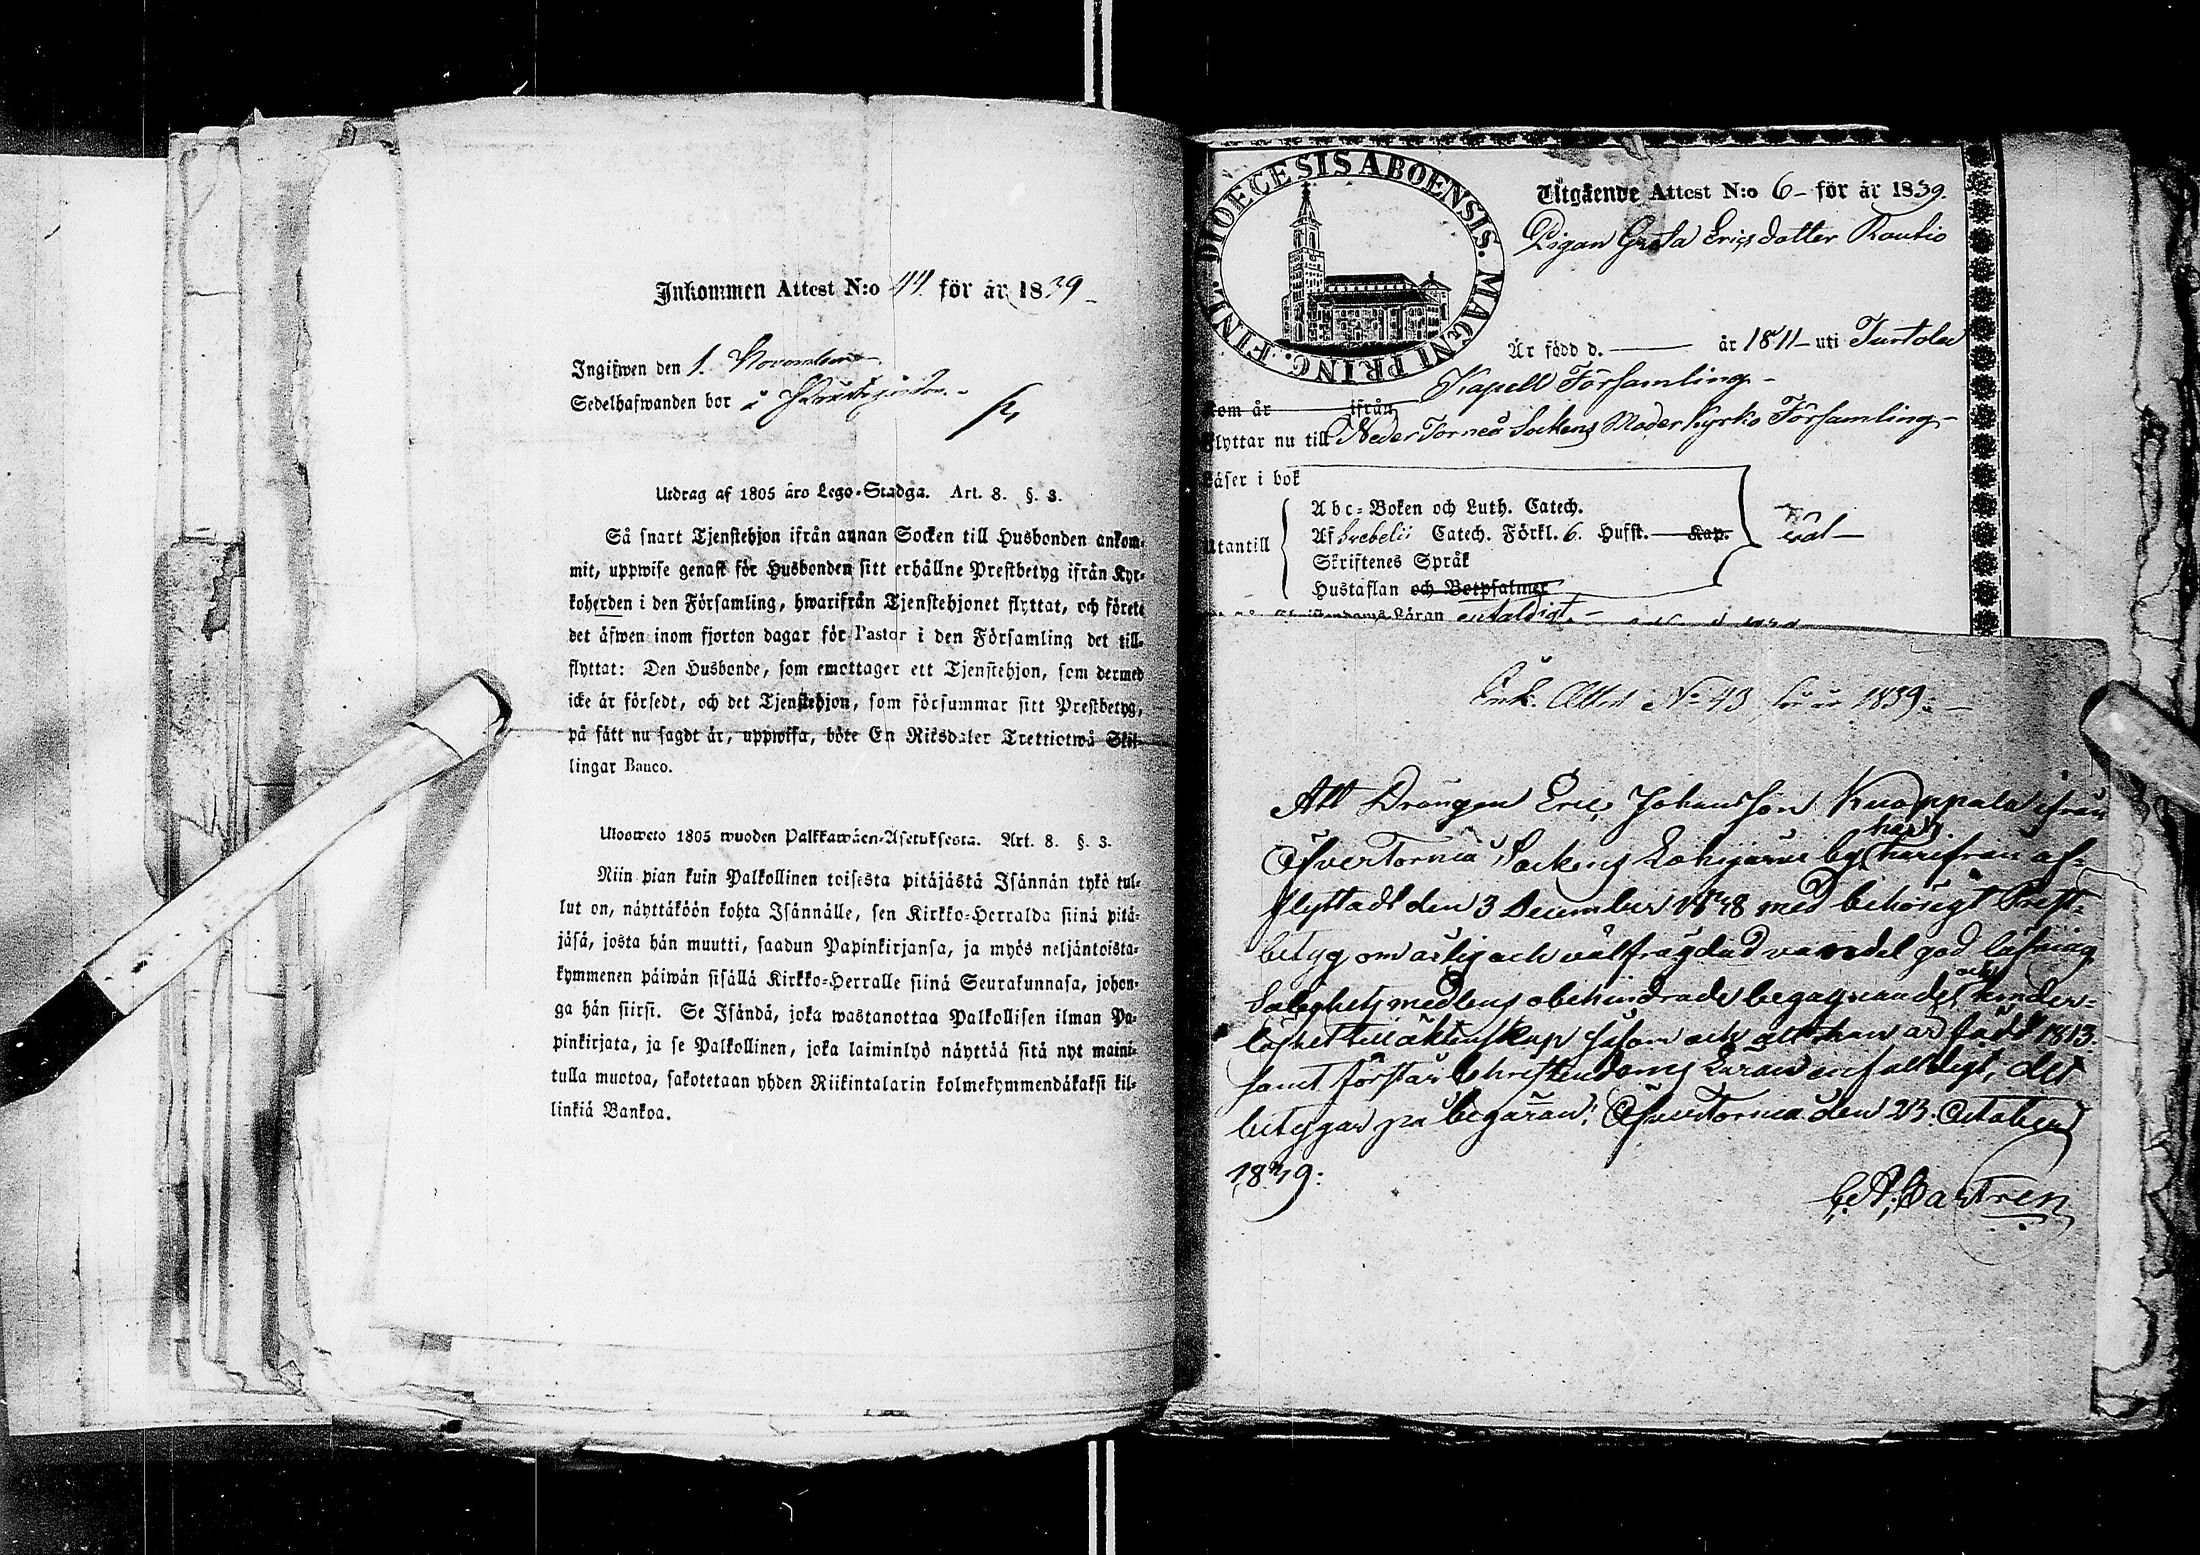 Inkommen Attest N:o 44. för år 1839
Ingifwen den 1. November
Sedelhafwanden bor i
Utdrag af 1805 års Lego-Stadga. Art. 8. §. 3.
Så snart Tjenstehjon ifrån annan Socken till Husbonden ankom-
mit, uppwise genast för Husbonden sitt erhållne Prestbetyg ifrån Kyr-
koherden i den Församling, hwarifrån Tjenstehjonet flyttat, och förete
det äfwen inom fjorton dagar för Pastor i den Församling det till-
flyttat: Den Husbonde, som emottager ett Tjenstehjon, som dermed
icke är försedt, och det Tjenstehjon, som försummar sitt Prestbetyg,
på sätt nu sagdt är, uppwisa, böte En Riksdaler Trettiotwå Skil-
lingar Banco.
Ulosweto 1805 wuoden Palkkawäen-Asetuksesta. Art. 8. §. 3.
Niin pian kuin Palkollinen toisesta pitäjästä Isännän tykö tul-
lut on, näyttäköön kohta Isännälle, sen Kirkko-Herralda siinä pitä-
jäsä, josta hän muutti, saadun Papinkirjansa, ja myös neljäntoista-
kymmenen päiwän sisällä Kirkko-Herralle siinä Seurakunnasa, johon-
ga hän siirsi. Se Isändä, joka wastanottaa Palkollisen ilman Pa-
pinkirjata, ja se Palkollinen, joka laiminlyö näyttää sitä nyt maini-
tulla muotoa, sakotetaan yhden Riikintalarin kolmekymmendäkaksi kil-
linkiä Bankoa.
DIOECESIS ABOENSIS. MAGNI PRINC. FINL.
Utgående Attest N:o 6 för år 1839.
Pigan Greta Ericsdotter Rautio
Är född d. — år 1811 uti Turtola
Kapell Församling
kom år ifrån
flyttar nu till Neder Torneå Sockens Moderkyrko Församling
Läser i bok
Abc-Boken och Luth. Catech.
Utantill Af Svebelii Catech. Förkl. 6. Hufst. Kap. väl
Skriftenes Språk
Hustaflan och Botpsalmer
Christendoms Läran enfaldigt.
Ink. Attest No 43 för år 1839
Att Drängen Eric Johansson Knoppala ifrån
Öfver Torneå Sockens Lohijärvi by, härifrån af-
flyttadt den 3 December 1838 med behörigt Prest-
betyg om ärlig och välfrägdad vandel god läsning
Salighetsmedlens obehindrade begagnande, och hinder-
löshet till äktenskap såsom ock att han är född 1813.
samt förstår Christendoms Läran enfalldigt, det
betygar på begäran; Öfver Torneå den 23. October
1839.
C. A. Castren